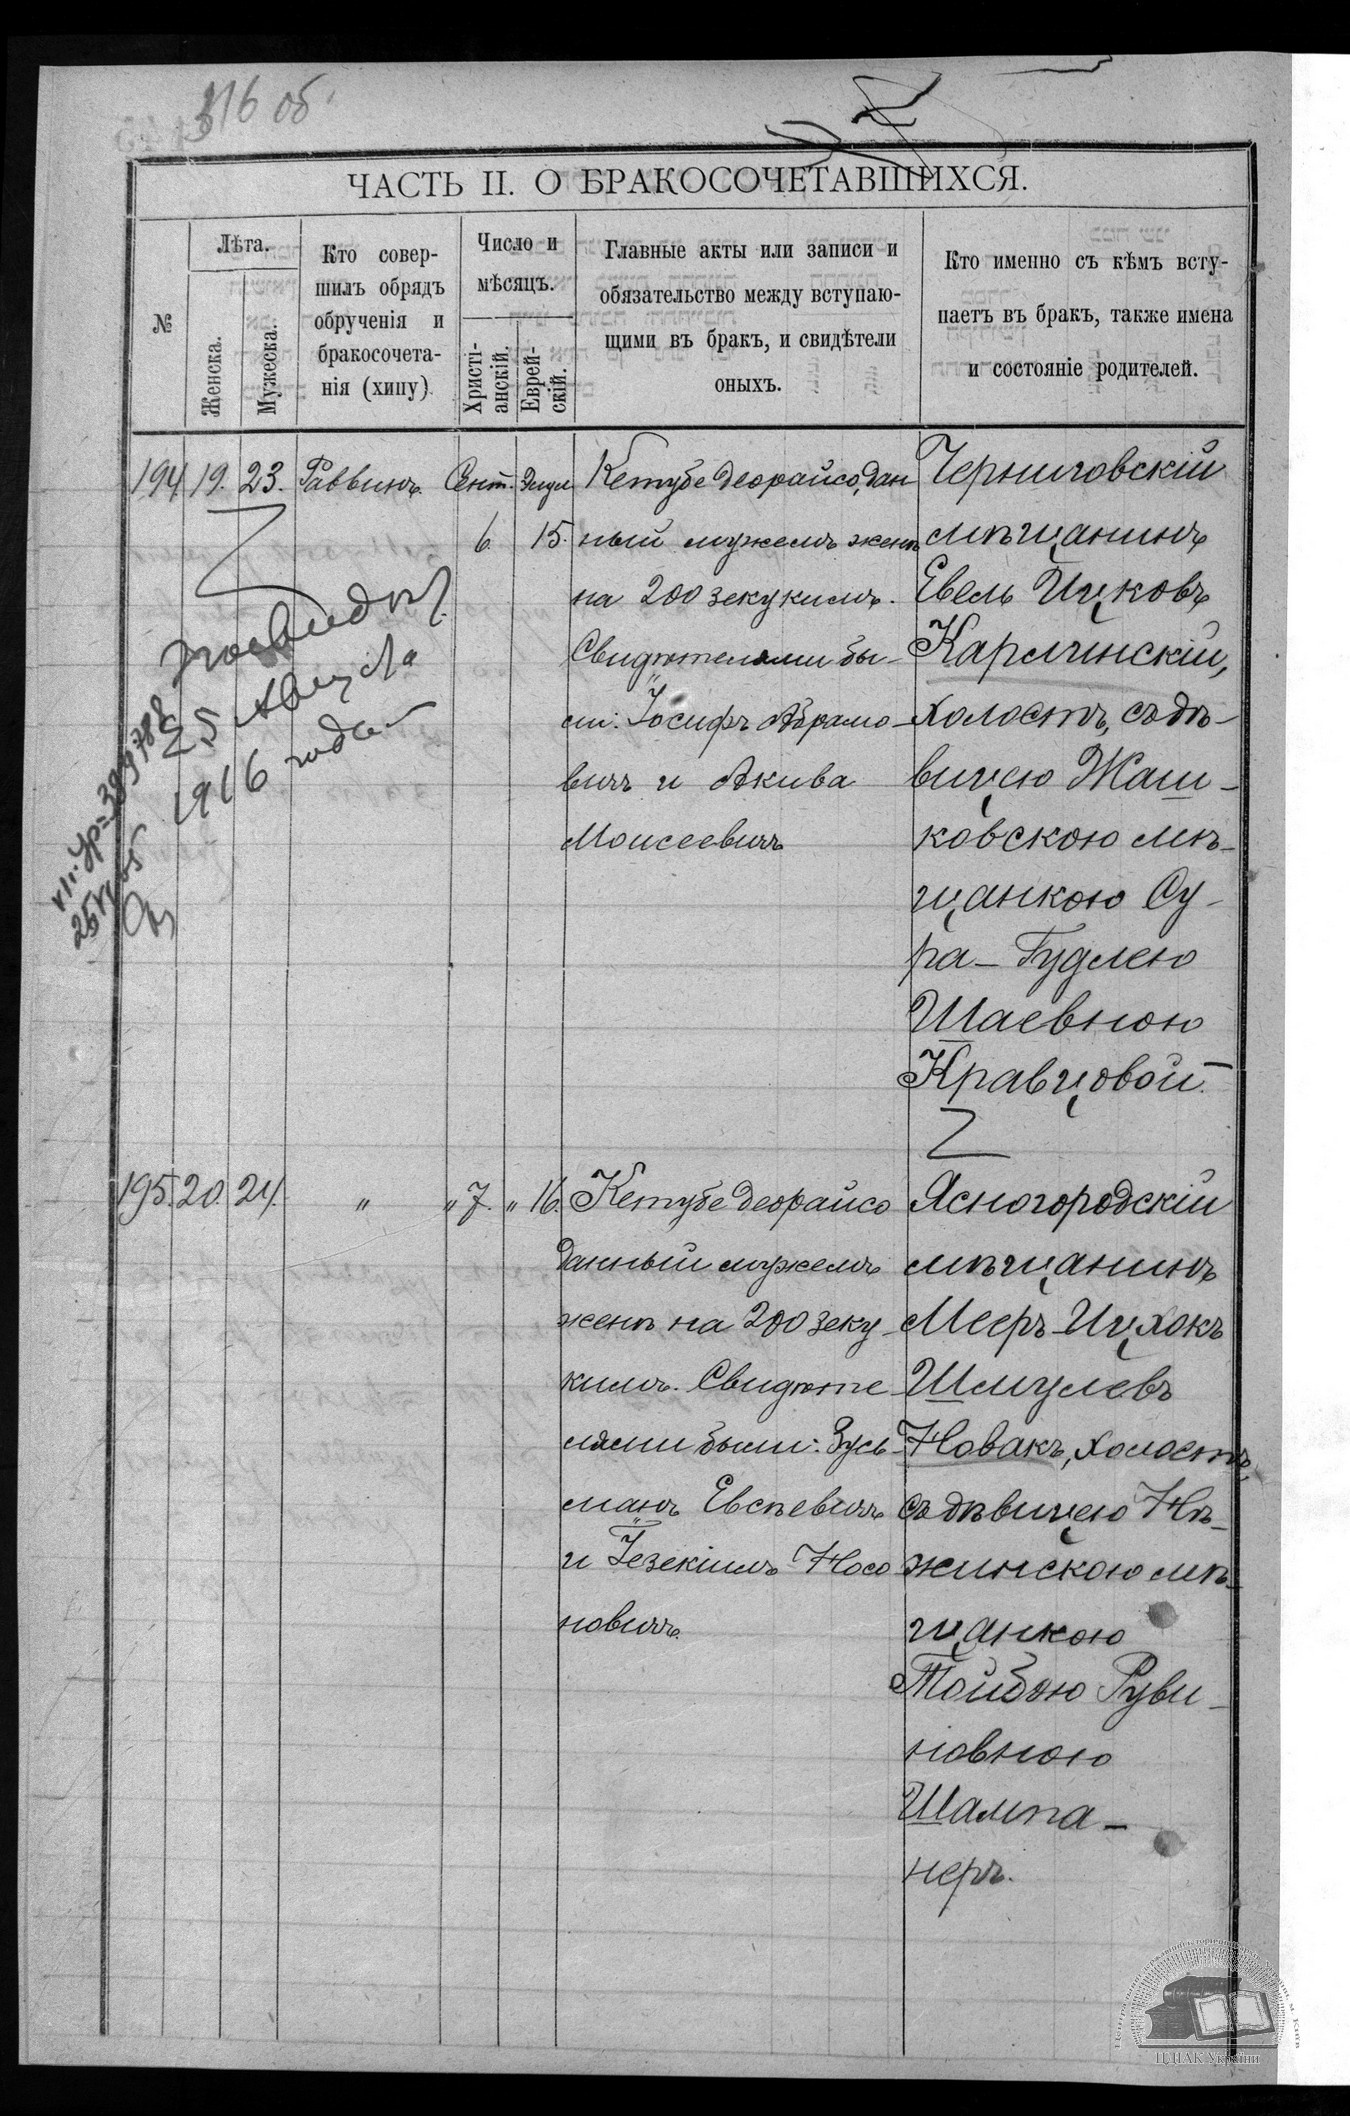 316 об.
ЧАСТЬ II. О БРАКОСОЧЕТАВШИХСЯ.
№
Лѣта.
Женска.
Мужеска.
Кто совер-
шилъ обрядъ
обрученія и
бракосочета-
нія (хипу)
Число и
мѣсяцъ.
Христі-
анскій.
Еврей-
скій.
Главные акты или записи и
обязательство между вступаю-
щими въ бракъ, и свидѣтели
оныхъ.
Кто именно съ кѣмъ всту-
паетъ въ бракъ, также имена
и состояніе родителей.
194 19. 23. Раввинъ. Сент. Элул
6. 15.
Кетубе деорайсо, дан
ный мужемъ женѣ
на 200 зекукимъ.
Свидѣтелями бы-
ли: Іосифъ Абрамо-
вичъ и Акива
Моисеевичъ
Черниговскій
мѣщанинъ
Евель Ицковъ
Карлинскій,
холостъ, съ дѣ-
вицею Жаш-
ковскою мѣ-
щанкою Су-
ра-Гудлею
Шаевною
Кравцовой.
25 Августа
1916 года
195. 20. 24. " " 7. " 16.
Кетубе деорайсо
данный мужемъ
женѣ на 200 зеку-
кимъ. Свидѣте-
лями были: Зусь-
манъ Евсѣевичъ
и Іезекіиль Носо-
новичъ.
Ясногородскій
мѣщанинъ
Мееръ-Ицхокъ
Шмулевъ
Новакъ, холостъ,
съ дѣвицею Нѣ-
жинскою мѣ-
щанкою
Тойбою Руви-
новною
Шампа-
неръ.
ЦДІАК України